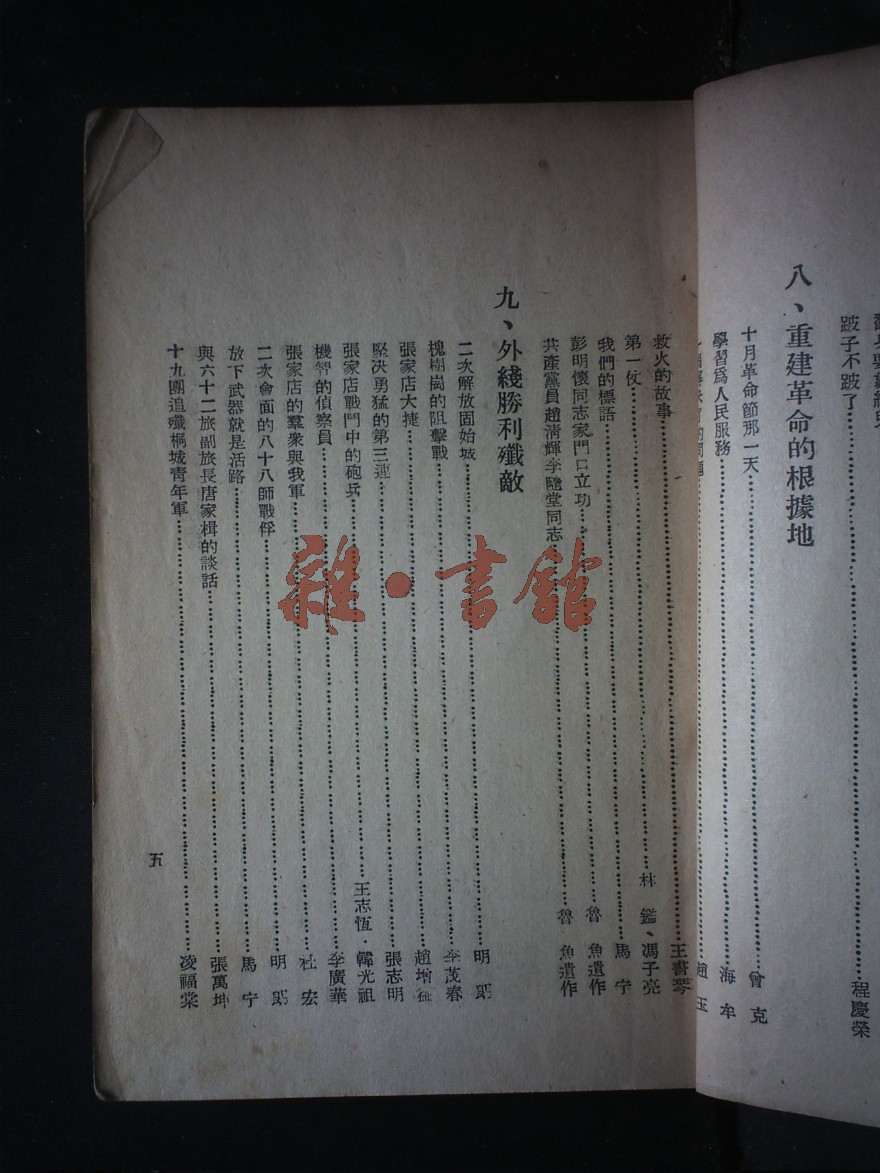 跛子不跛了 程慶榮
八、重建革命的根據地
十月革命節那一天 曾克
學習爲人民服務 海牟
趙玉
救火的故事 王書琴
第一仗 林鑑、馮子亮
我們的標語 馬宁
彭明懷同志家門口立功 魯魚遺作
共產黨員趙清輝李隨堂同志 魯魚遺作
九、外綫勝利殲敵
二次解放固始城 明
槐樹崗的阻擊戰 李茂春
張家店大捷 趙增益
堅決勇猛的第三連 張志明
張家店戰鬥中的砲兵 王志恆·韓光祖
機智的偵察員 李廣華
張家店的羣衆與我軍 杜宏
二次會面的八十八師戰俘 明
放下武器就是活路 馬宁
與六十二旅副旅長唐家楫的談話 張萬坤
十九團追殲桐城青年軍 凌福棠
五
雜·書館